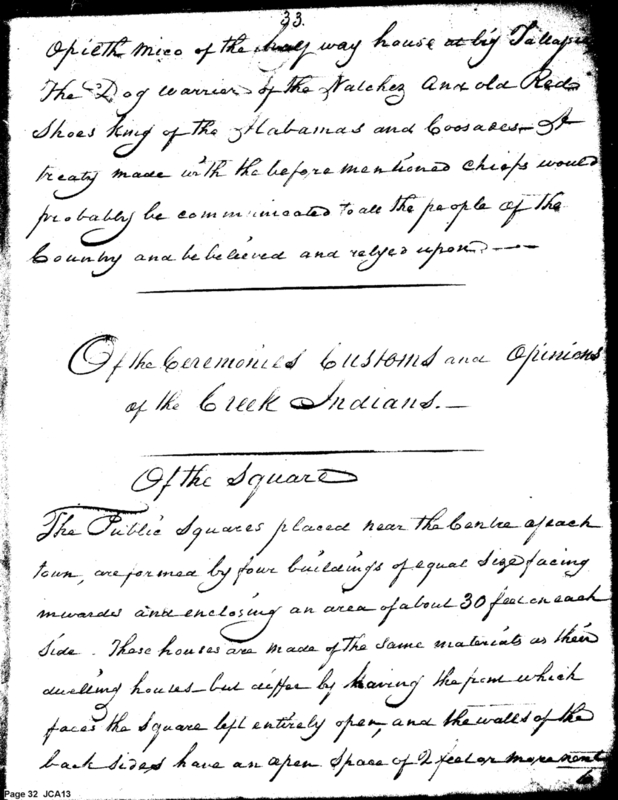 33.
Opieth Mico of the half way house at big Tallapse
The Dog warrior of the Natchez And old Red
Shoes King of the Alabamas and Coosades — A
treaty made with the before mentioned chiefs would
probably be communicated to all the people of the
Country and be believed and relyed upon —
Of the Ceremonies Customs and Opinions
of the Creek Indians. —
Of the Square
The Public Squares placed near the Centre of each
town, are formed by four buildings of equal size facing
inwards and enclosing an area of about 30 feet on each
side. These houses are made of the same materials as their
dwelling houses — but differ by having the front which
faces the square left entirely open, and the walls of the
back sides have an open space of 2 feet or more next
to
Page 32 JCA13